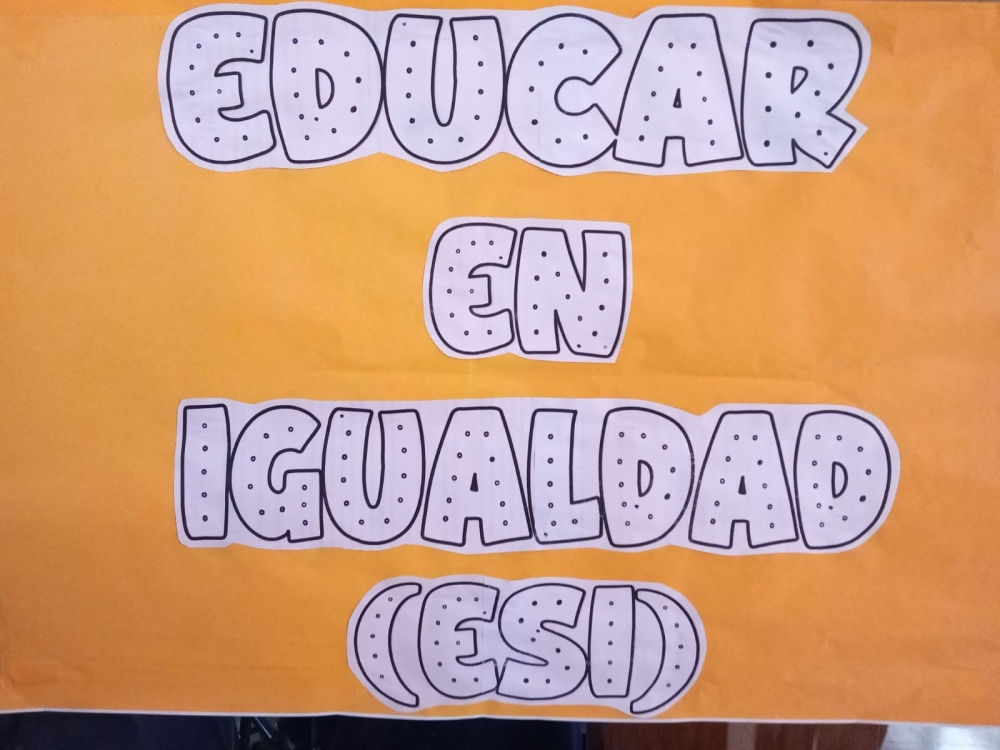 EDUCAR
EN
IGUALDAD
(ESI)